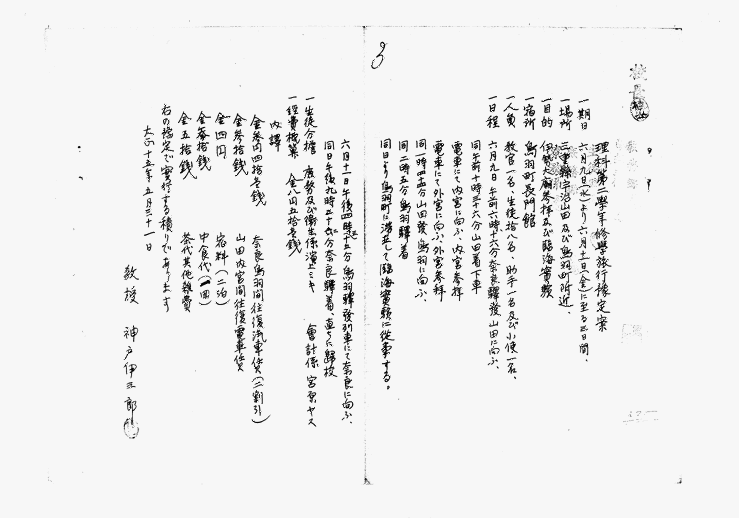 校長
理科第二學年修學旅行豫定案
一期日 六月九日(水)より六月十一日(金)に至る三日間、
一場所 三重縣宇治山田及び鳥羽町附近、
一目的 伊勢大廟参拜及び臨海實驗
一宿所 鳥羽町長門館
一人員 教官一名、生徒拾八名、助手一名及び小使一名、
一日程 六月九日午前六時十六分奈良驛發山田に向ふ、
同午前十時三十六分山田着下車
電車にて内宮に向ふ、内宮参拜
電車にて外宮に向ふ、外宮参拜
同一時四十五分山田發鳥羽に向ふ、
同二時五分鳥羽驛着
同日より鳥羽町に滞在して臨海實驗に從事する。
六月十一日午後四時五十五分鳥羽驛發列車にて奈良に向ふ、
同日午後九時五十六分奈良驛着、直ちに歸校
一生徒分擔 庶務及び衞生係 濱上ミキ 會計係 宮梨ヤス
一經費概算 金八円五拾壱錢
内譯
金参円四拾壱錢 奈良鳥羽間往復汽車賃(二割引)
金参拾錢 山田内宮間往復電車賃
金四円 宿料(二泊)
金参拾錢 中食代(一回)
金五拾錢 茶代其他雜費
右の豫定で實行する積りであります
大正十五年五月三十一日
教授 神戸伊三郎